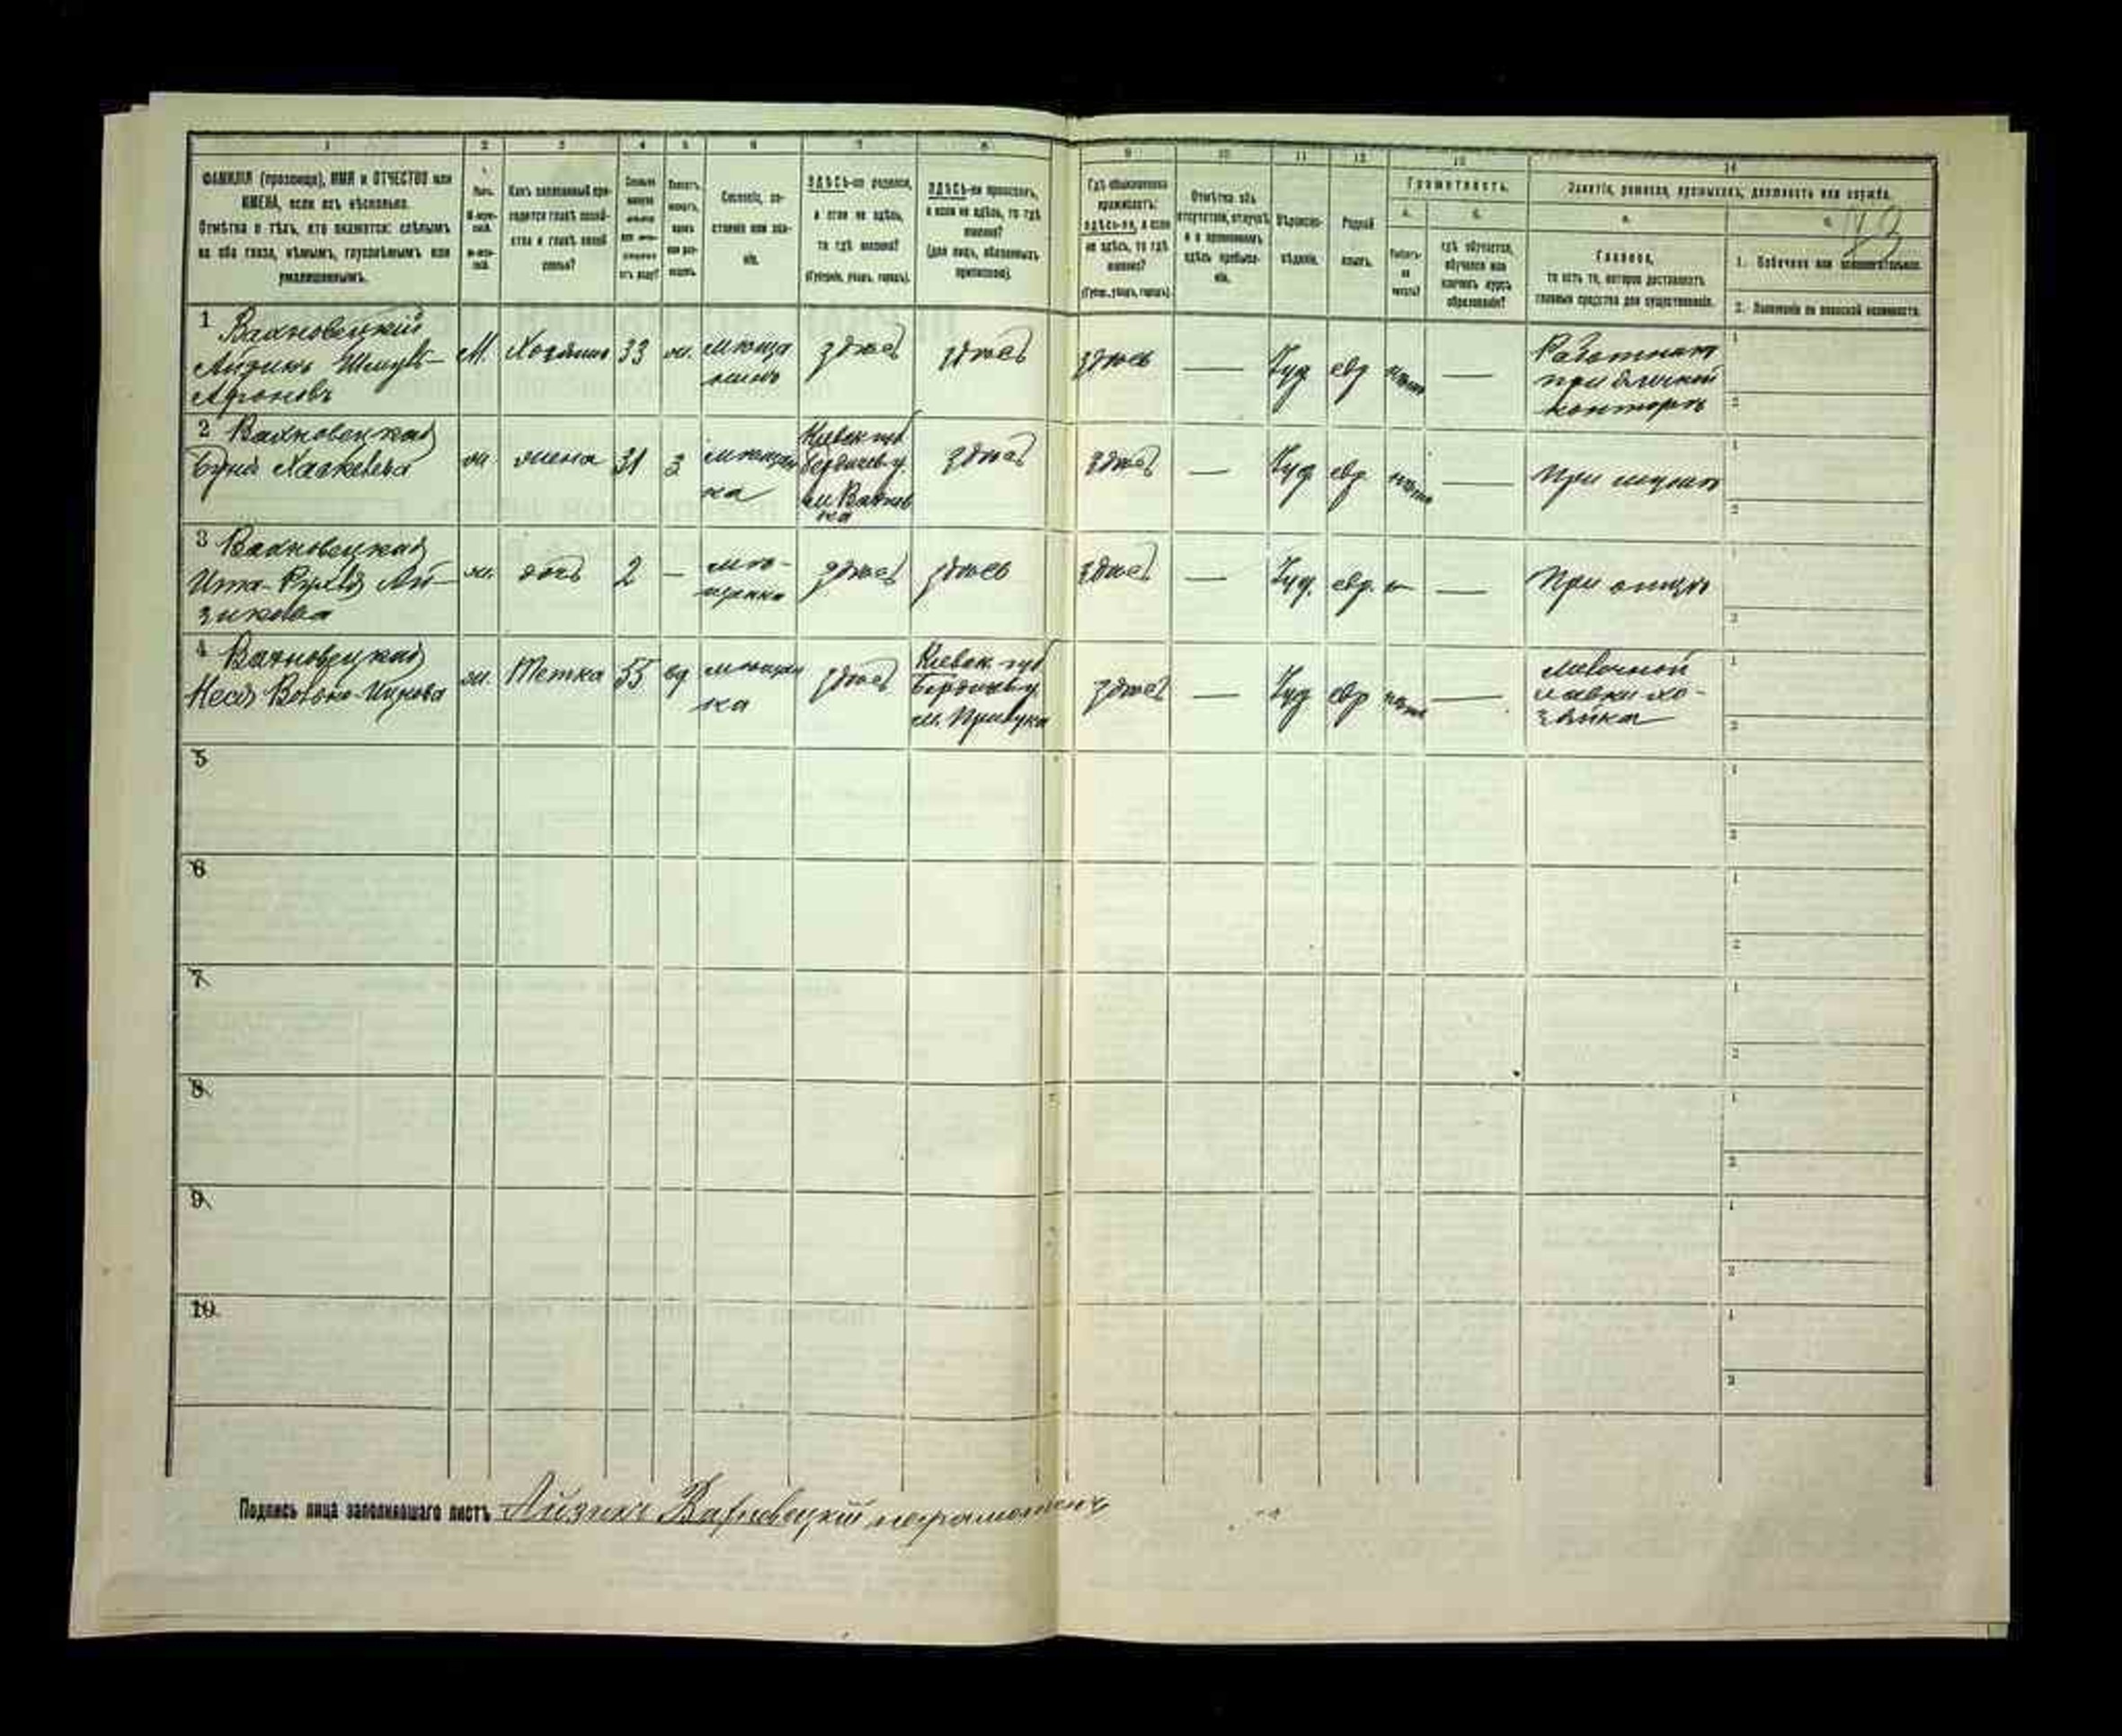 1 2 3 4 5 6 7 8 9 10 11 12 13 14
ФАМИЛІЯ (прозвище), ИМЯ и ОТЧЕСТВО или
ИМЕНА, если ихъ нѣсколько.
Отмѣтка о тѣхъ, кто окажется: слѣпымъ
на оба глаза, нѣмымъ, глухонѣмымъ или
умалишеннымъ.
Полъ.
Какъ записанный при-
ходится главѣ хозяй-
ства и главѣ своей
семьи?
Сословіе, со-
стояніе или зва-
ніе.
ЗДѢСЬ-ли родился,
а если не здѣсь,
то гдѣ именно?
(Губернія, уѣздъ, городъ).
ЗДѢСЬ-ли приписанъ,
а если не здѣсь, то гдѣ
именно?
(для лицъ, обязанныхъ
припискою).
Гдѣ обыкновенно
проживаетъ:
здѣсь-ли, а если
не здѣсь, то гдѣ
именно?
(Губер., уѣздъ, городъ).
Отмѣтка объ
отсутствіи, отлучкѣ
и о временномъ
здѣсь пребыва-
ніи.
Вѣроиспо-
вѣданіе.
Родной
языкъ.
Грамотность.
а. б.
Умѣетъ-
ли
читать?
гдѣ обучается,
обучался или
кончилъ курсъ
образованія?
Занятіе, ремесло, промыселъ, должность или служба.
а. б.
Главное,
то есть то, которое доставляетъ
главныя средства для существованія.
1. Побочное или вспомогательное.
2. Положеніе по воинской повинности.
1 Вахновецкій
Айзикъ Шмуль-
Ароновъ
М. Хозяинъ 33 ж. мѣща
нинъ
здѣсь здѣсь здѣсь — Іуд евр нѣтъ —
Работникъ
при
конторѣ
1
2
2 Вахновецкая
Хаскелева
ж. жена 31 з мѣщан
ка
Киевск губ
Бердичев у.
м Вахнов
ка
здѣсь здѣсь — Іуд евр. нѣтъ — При мужѣ
1
2
3 Вахновецкая
Ита-Рухля Ай-
зикова
ж. дочь 2 — мѣ-
щанка
здѣсь здѣсь здѣсь — Іуд. евр. н — При отцѣ
1
2
4 Вахновецкая
Неся
ж. Тетка 55 вд мѣщан
ка
здѣсь
Киевск. губ
Бердичев у.
м. Прилука
здѣсь — Іуд евр нѣтъ —
лавки хо-
зяйка
1
2
5
1
2
6
1
2
7
1
2
8
1
2
9
1
2
10
1
2
Подпись лица заполнявшаго листъ Айзикъ Вахновецкій неграмотенъ